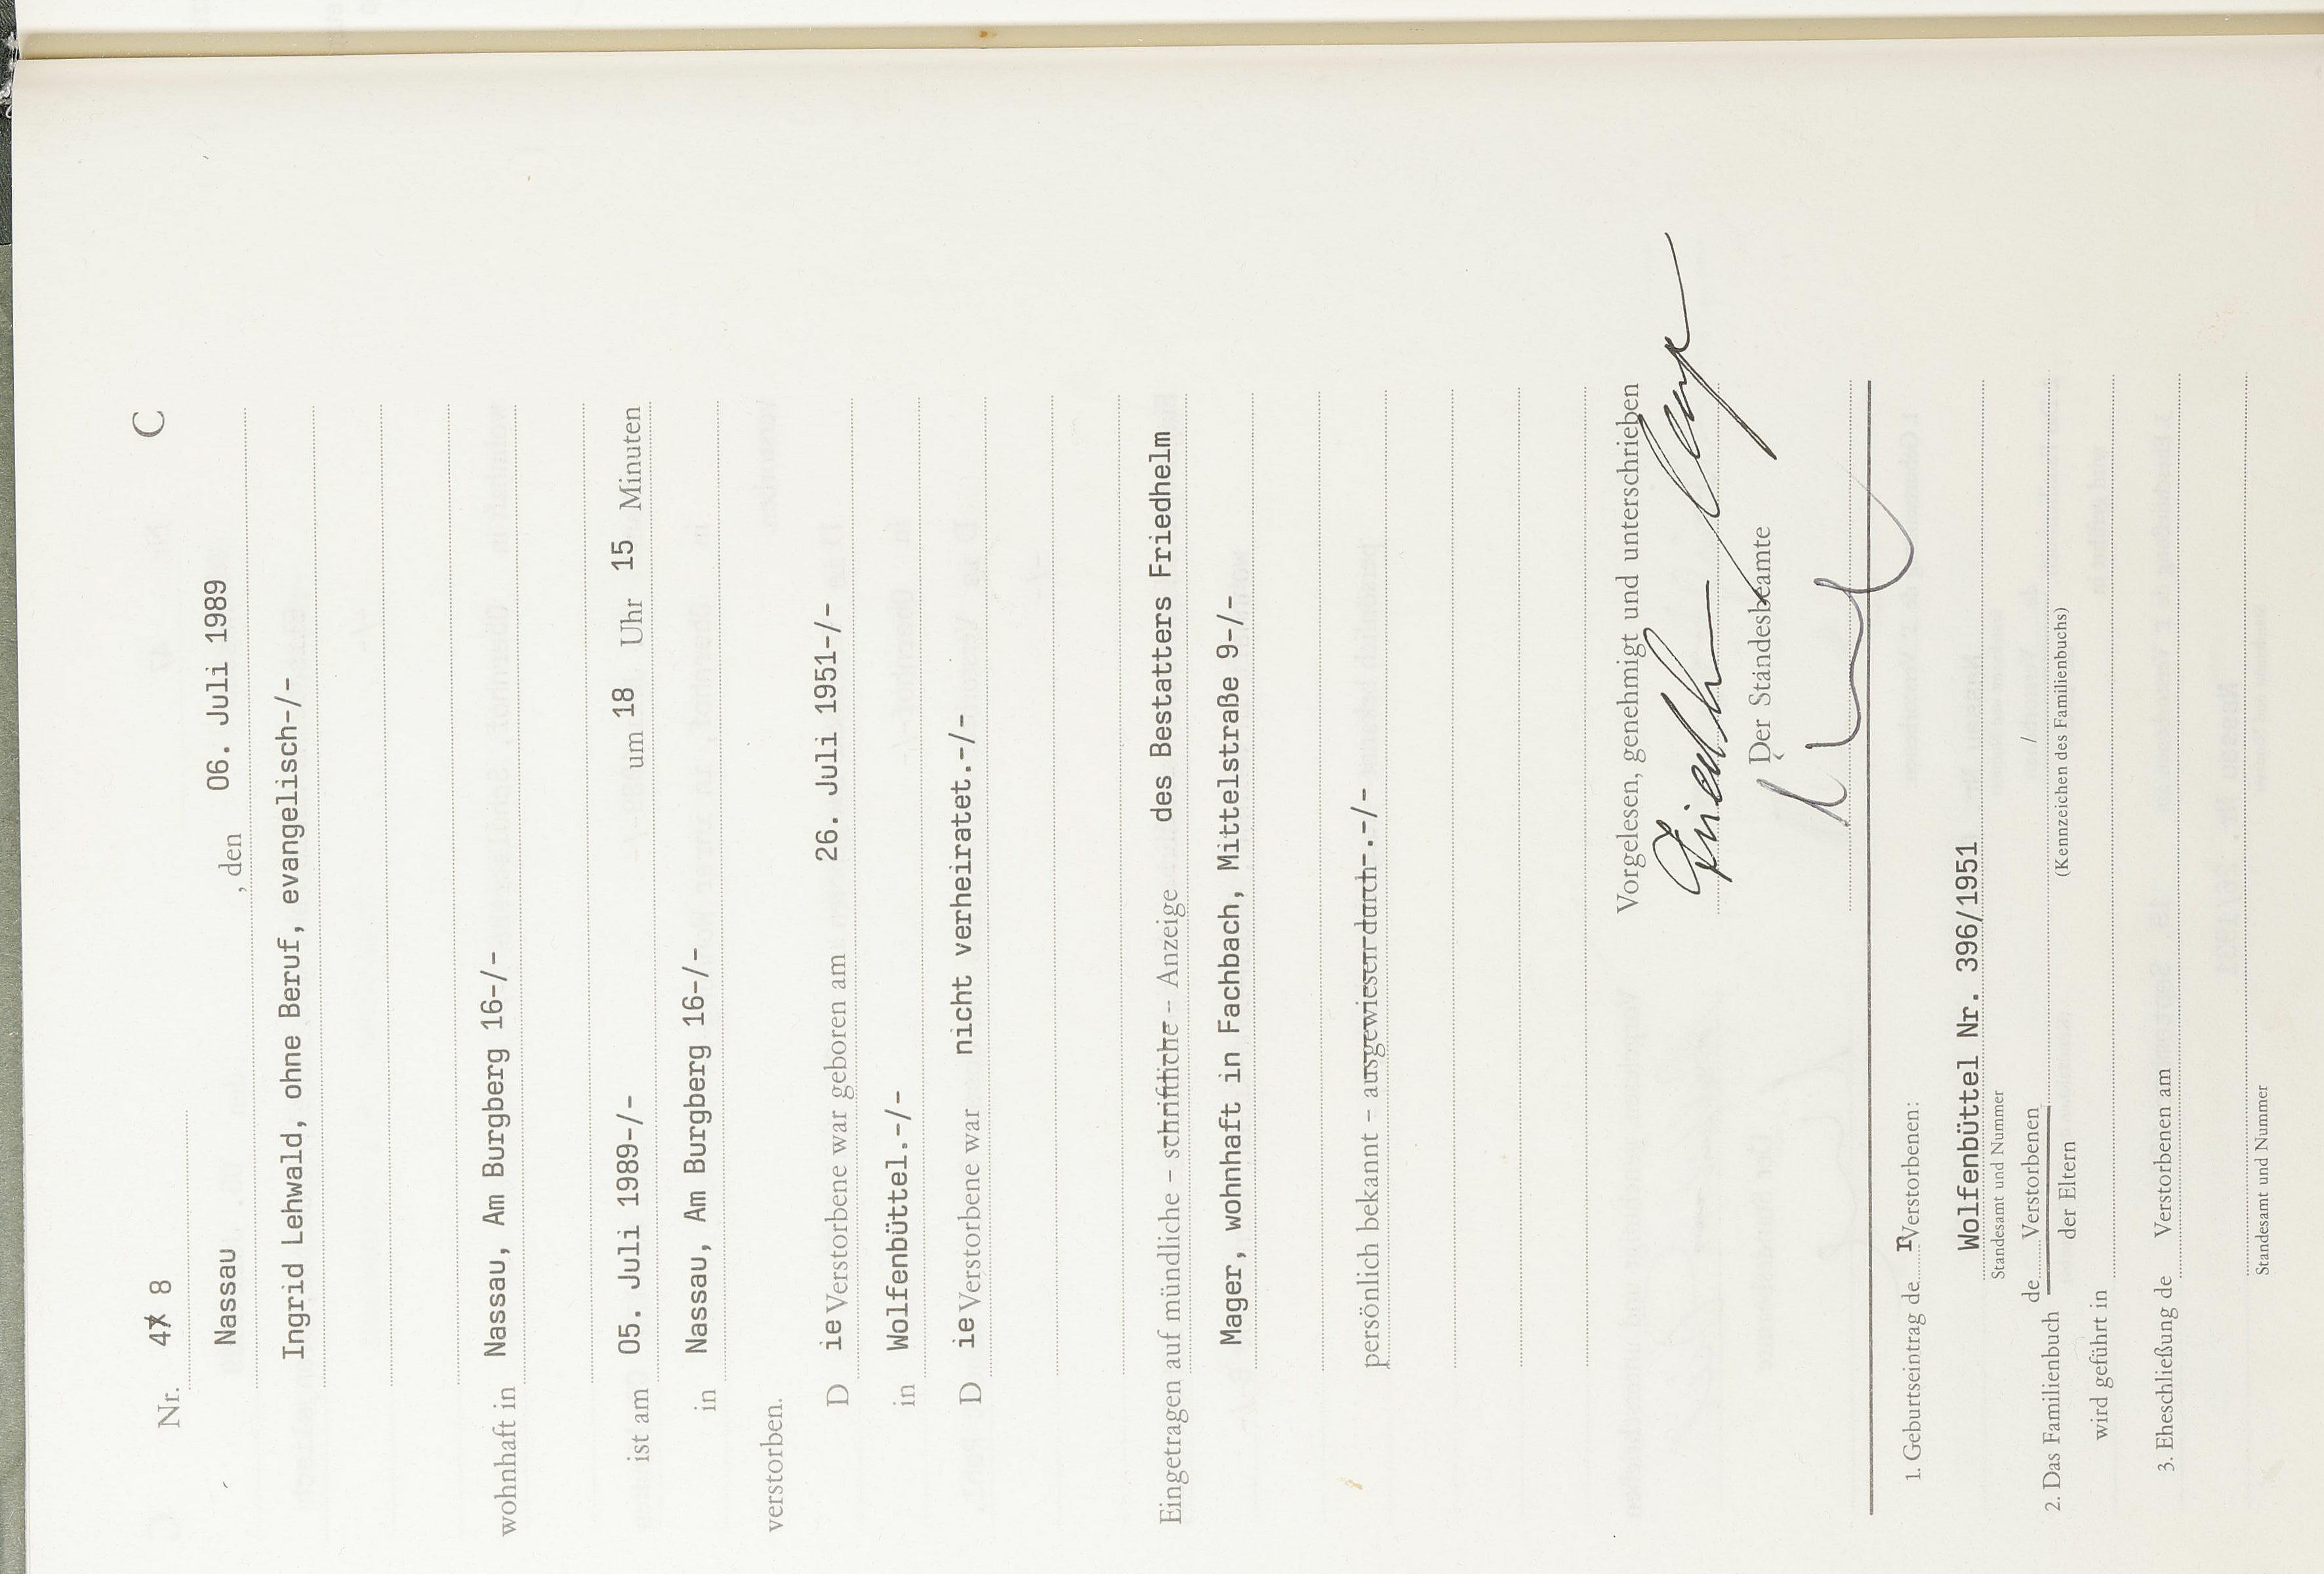 Nr. 47 8 C
Nassau , den 06. Juli 1989
Ingrid Lehwald, ohne Beruf, evangelisch-/-
wohnhaft in Nassau, Am Burgberg 16-/-
ist am 05. Juli 1989-/- um 18 Uhr 15 Minuten
in Nassau, Am Burgberg 16-/-
verstorben.
D ie Verstorbene war geboren am 26. Juli 1951-/-
in Wolfenbüttel.-/-
D ie Verstorbene war nicht verheiratet.-/-
Eingetragen auf mündliche – schriftliche – Anzeige des Bestatters Friedhelm
Mager, wohnhaft in Fachbach, Mittelstraße 9-/-
persönlich bekannt – ausgewiesen durch-.-/-
Vorgelesen, genehmigt und unterschrieben
Friedhelm Mager
Der Standesbeamte
1. Geburtseintrag de r Verstorbenen:
Wolfenbüttel Nr. 396/1951
Standesamt und Nummer
2. Das Familienbuch de Verstorbenen /
der Eltern (Kennzeichen des Familienbuchs)
wird geführt in
3. Eheschließung de Verstorbenen am
Standesamt und Nummer